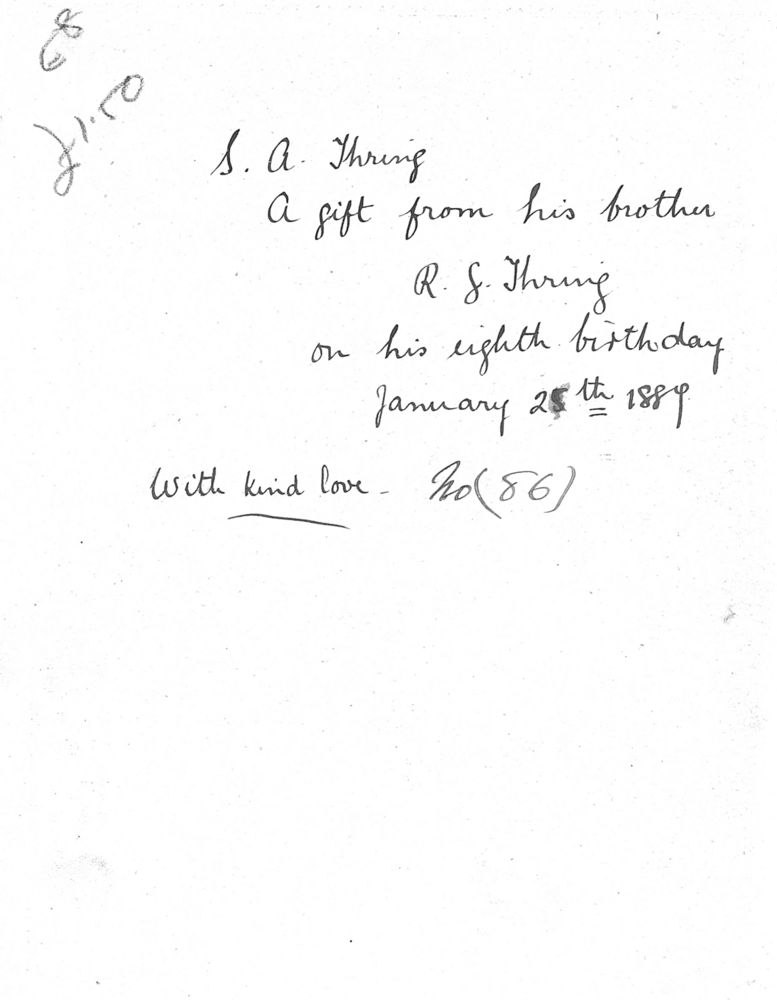 68
£1.50
S. A. Thring
A gift from his brother
R. G. Thring
on his eighth birthday
January 25th 1889
With kind love - No (86)